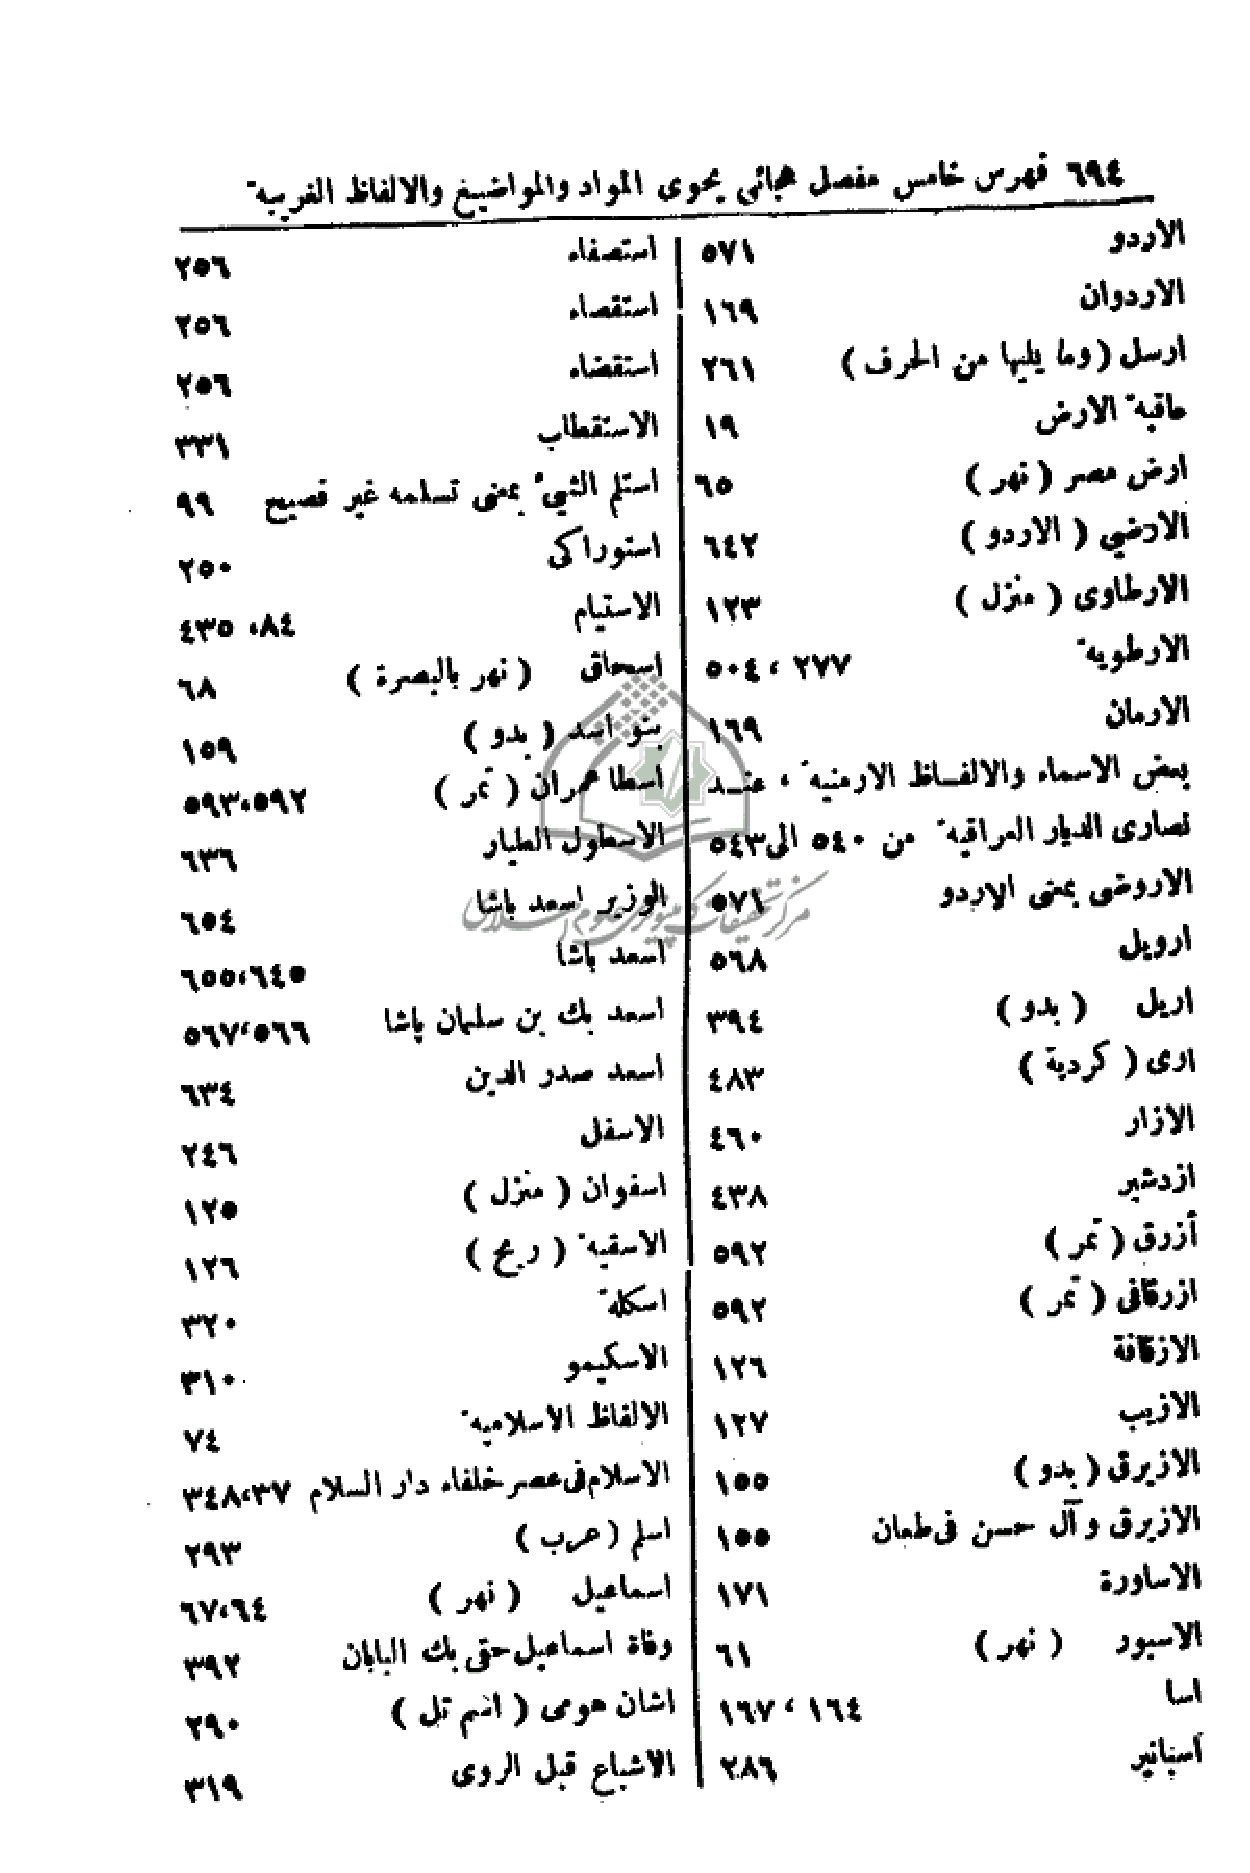 ٦٩٤ فهرس خامس مفصل هجائي يحوى المواد والمواضيع والالفاظ الغريبة
الاردو ٥٧١
الاردوان ١٦٩
ارسل (وما يليها من الحرف) ٢٦١
عاقبة الارض ١٩
ارض مصر (نهر) ٦٥
الارضي (الاردو) ٦٤٢
الارطاوى (منزل) ١٢٣
الارطوية ٢٧٧ ، ٥٠٤
الارمان ١٦٩
بعض الاسماء والالفاظ الارمنية ، عند
نصارى الديار العراقية من ٥٤٠ الى ٥٤٣
الاروضى بمعنى الاردو ٥٧١
ارويل ٥٦٨
اريل (بدو) ٣٩٤
ارى (كردية) ٤٨٣
الازار ٤٦٠
ازدشير ٤٣٨
أزرق (تمر) ٥٩٢
ازرقانى (تمر) ٥٩٢
الازقانة ١٢٦
الازيب ١٢٧
الازيرق (بدو) ١٥٥
الازيرق وآل حسن فى طعان ١٥٥
الاساورة ١٧١
الاسبور (نهر) ٦١
اسا ١٦٤ ، ١٦٧
اسبانير ٢٨٦
استصفاء ٢٥٦
استقصاء ٢٥٦
استقضاء ٢٥٦
الاستقطاب ٣٣١
استلم الشيء بمعنى تسلمه غير فصيح ٩٩
استوراكى ٢٥٠
الاستيام ٨٤، ٤٣٥
اسحاق (نهر بالبصرة) ٦٨
بنو اسد (بدو) ١٥٩
اسطا عمران (تمر) ٥٩٢،٥٩٣
الاسطول الطيار ٦٣٦
الوزير اسعد باشا ٦٥٤
اسعد باشا ٦٤٥،٦٥٥
اسعد بك بن سلمان پاشا ٥٦٦،٥٦٧
اسعد صدر الدين ٦٣٤
الاسفل ٢٤٦
اسفوان (منزل) ١٢٥
الاسقية (ريح) ١٢٦
اسكلة ٣٢٠
الاسكيمو ٣١٠
الالفاظ الاسلامية ٧٤
الاسلام فى عصر خلفاء دار السلام ٣٧،٣٤٨
اسلم (عرب) ٢٩٣
اسماعيل (نهر) ٦٤،٦٧
وفاة اسماعيل حقى بك البابان ٣٩٢
اشان هومى (اسم تل) ٢٩٠
الاشباع قبل الروى ٣١٩
مركز تحقيقات كامپيوترى علوم اسلامى